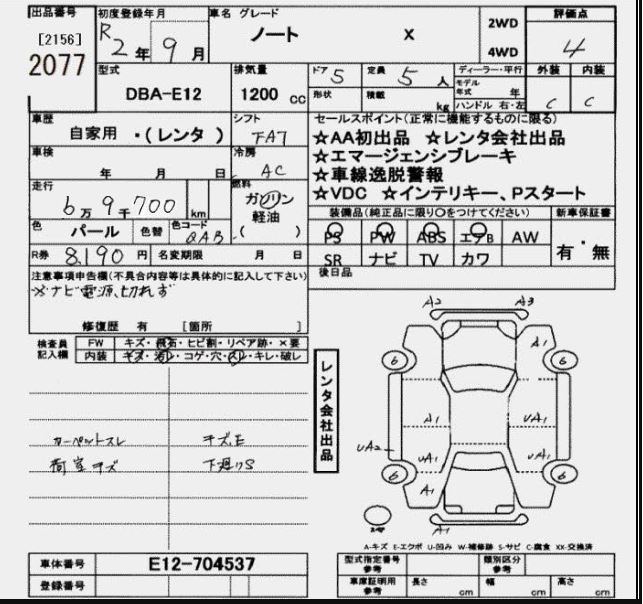 出品番号 初度登録年月 車名 グレード 2WD 評価点
[2156] R2年9月 ノート X 4WD 4
2077
型式 排気量 ドア 5 定員 5人 ディーラー・平行 外装 内装
DBA-E12 1200cc 形状 積載 kg モデル年式 年 C C
ハンドル 右・左
車歴 シフト セールスポイント(正常に機能するものに限る)
自家用 ・(レンタ) FA7 ☆AA初出品 ☆レンタ会社出品
車検 冷房 ☆エマージェンシブレーキ
年 月 日 AC ☆車線逸脱警報
走行 燃料 ☆VDC ☆インテリキー、Pスタート
6万9千700km ガソリン
軽油
( )
装備品(純正品に限り○をつけてください) 新車保証書
色 パール 色替 色コード QAB PS PW ABS エアB AW 有・無
R券 8,190円 名変期限 月 日 SR ナビ TV カワ
注意事項申告欄(不具合内容等は具体的に記入して下さい) 後日品
※ナビ電源切れず
修復歴 有 [箇所 ]
検査員記入欄 FW キズ・飛石・ヒビ割・リペア跡・×要
内装 キズ・汚れ・コゲ・穴・スレ・キレ・破レ
レンタ会社出品
カーペットスレ キズE
荷室キズ 下廻りS
A2 A3
A1
6 6
A1 UA1
UA2 UA1 UA1
6 6
A1
A1
A-キズ E-エクボ U-凹み W-補修跡 S-サビ C-腐食 XX-交換済
車体番号 E12-704537 型式指定番号 参考 類別区分 参考
登録番号 車庫証明用 参考 長さ cm 幅 cm 高さ cm